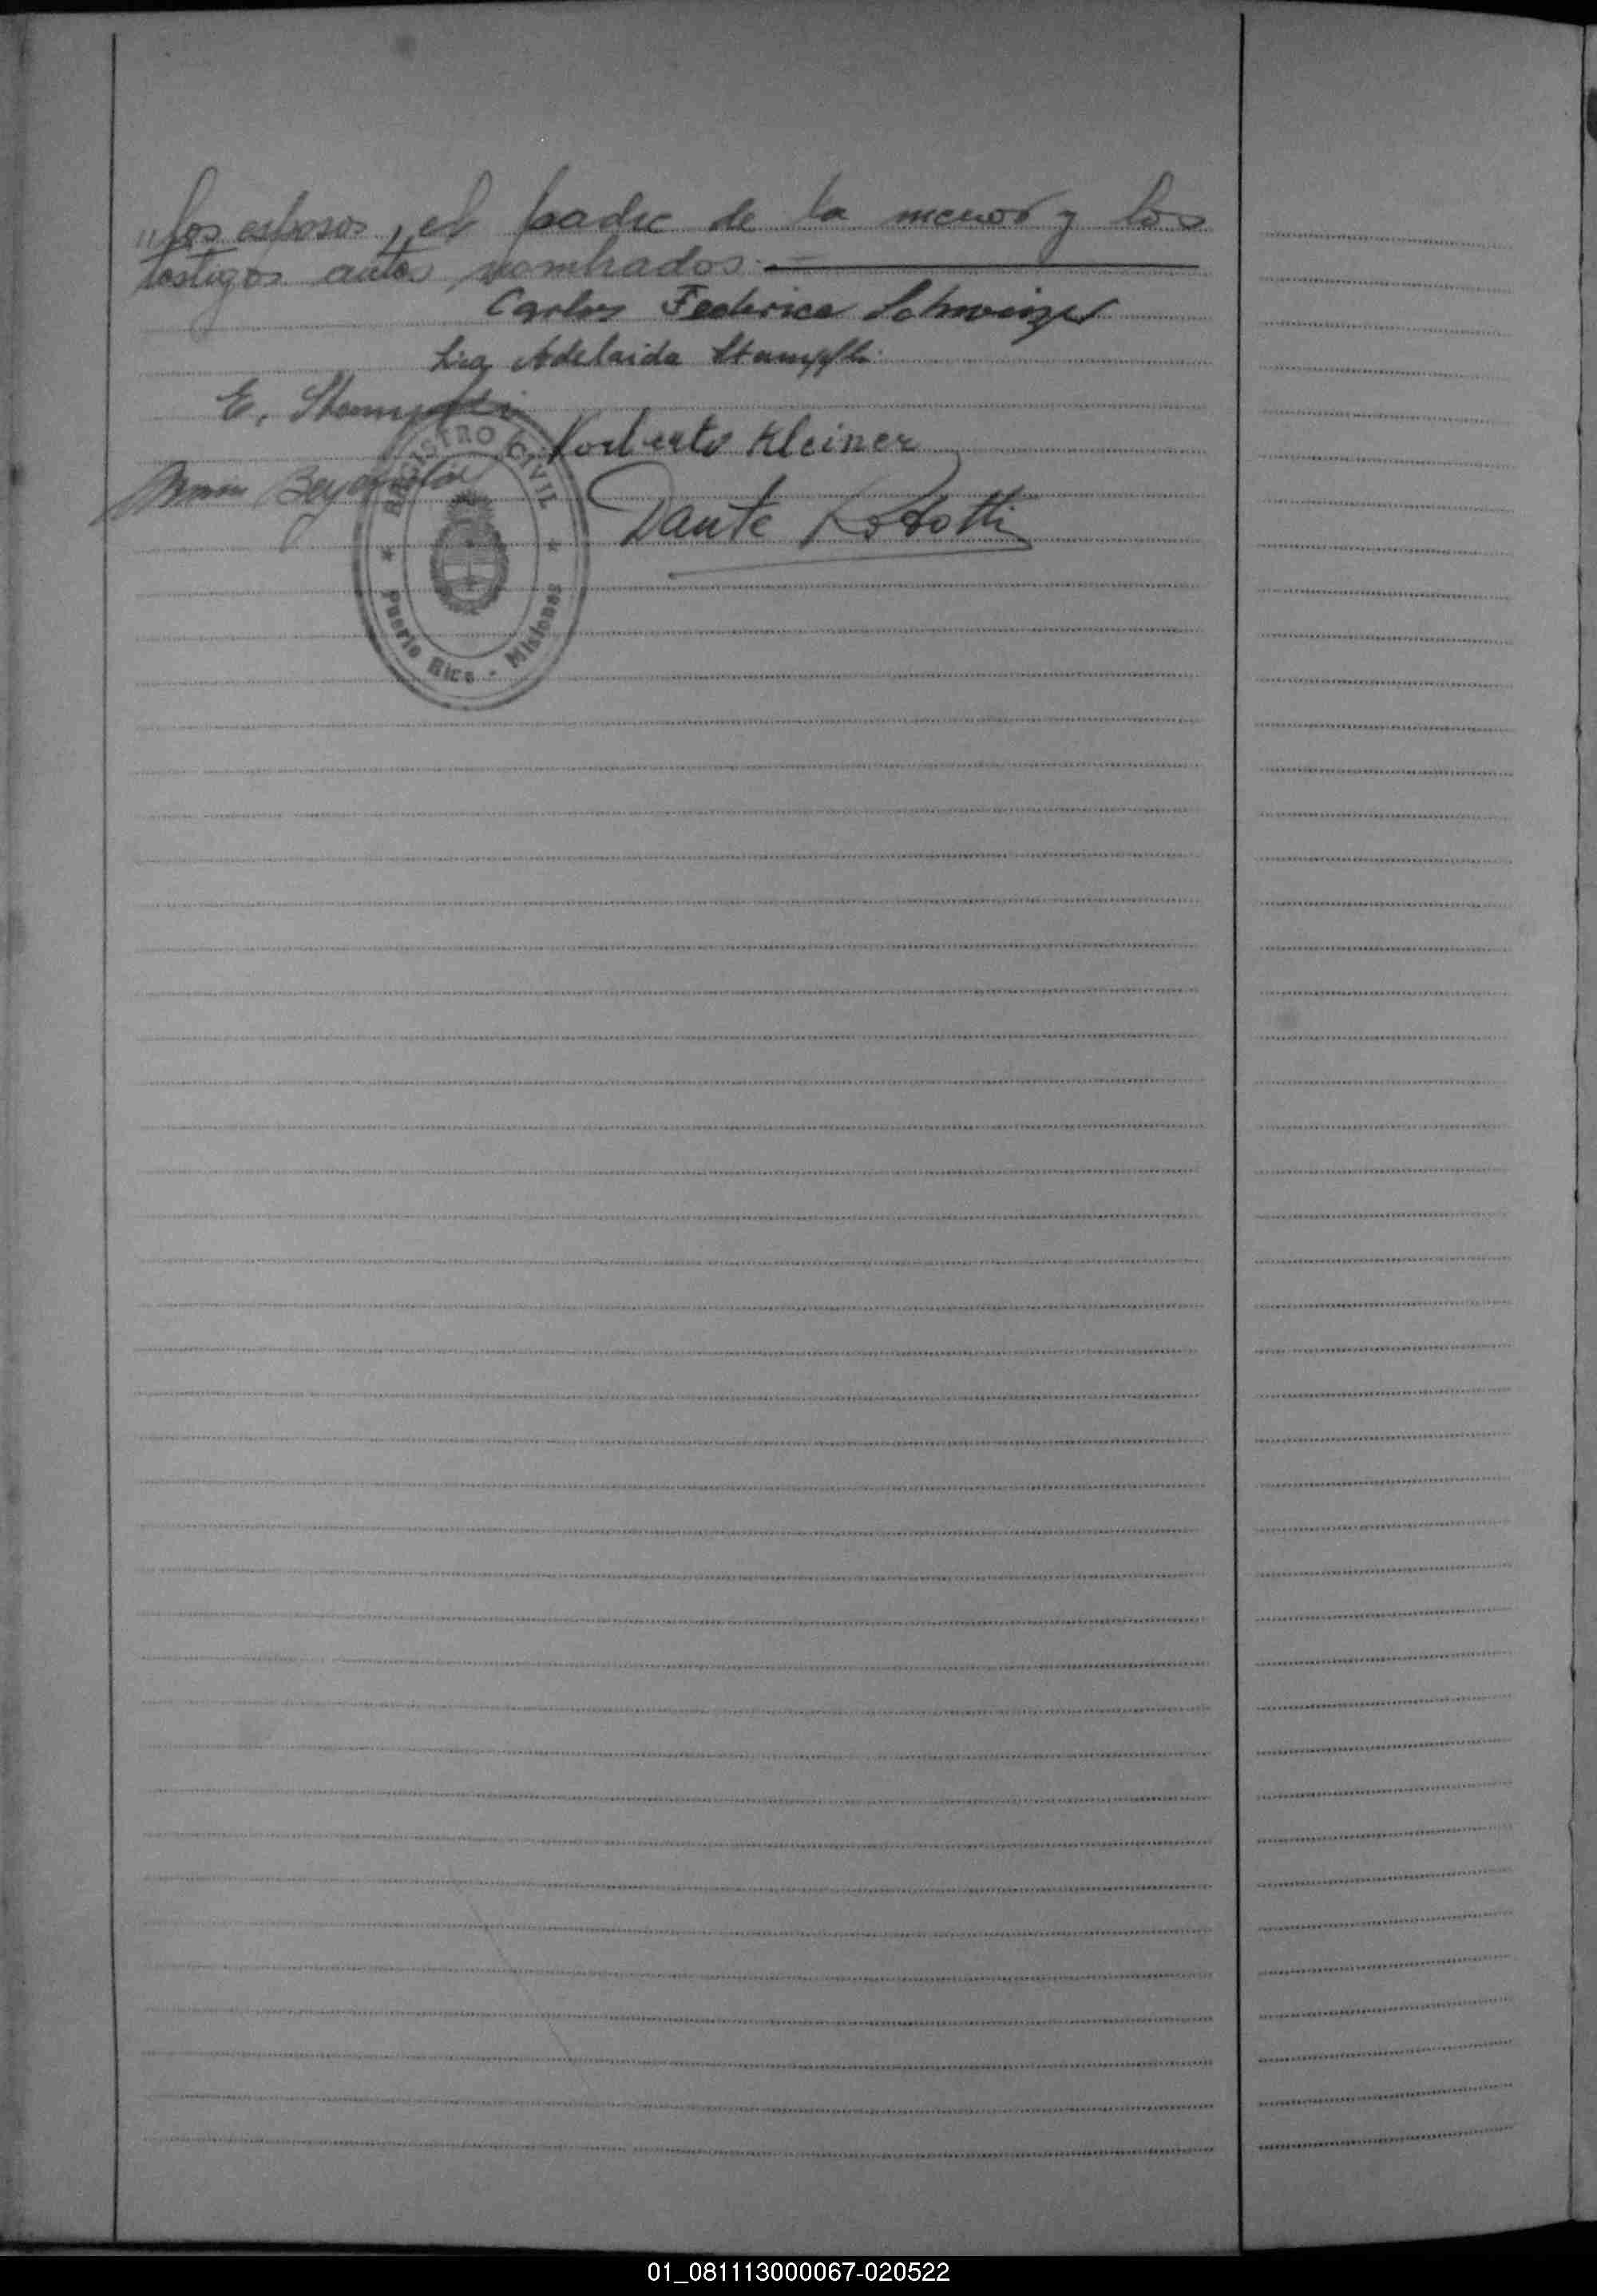 "los esposos, el padre de la menor y los
testigos antes nombrados.—
Carlos Federico Schweizer
Adelaida Stampfli
E. Stampfli
Norberto Kleiner
Dante Rototti
REGISTRO CIVIL
Puerto Rico - Misiones
01_081113000067-020522